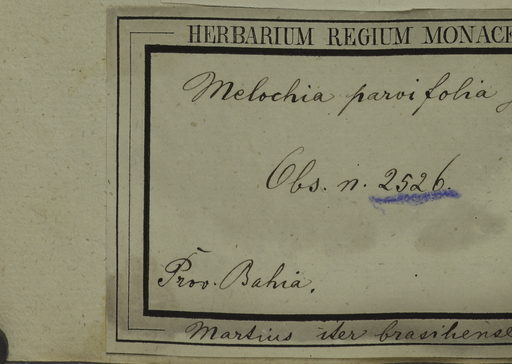 HERBARIUM REGIUM MONACE
Melochia parvifolia
Obs. n. 2526.
Prov. Bahia.
Martius iter brasiliense